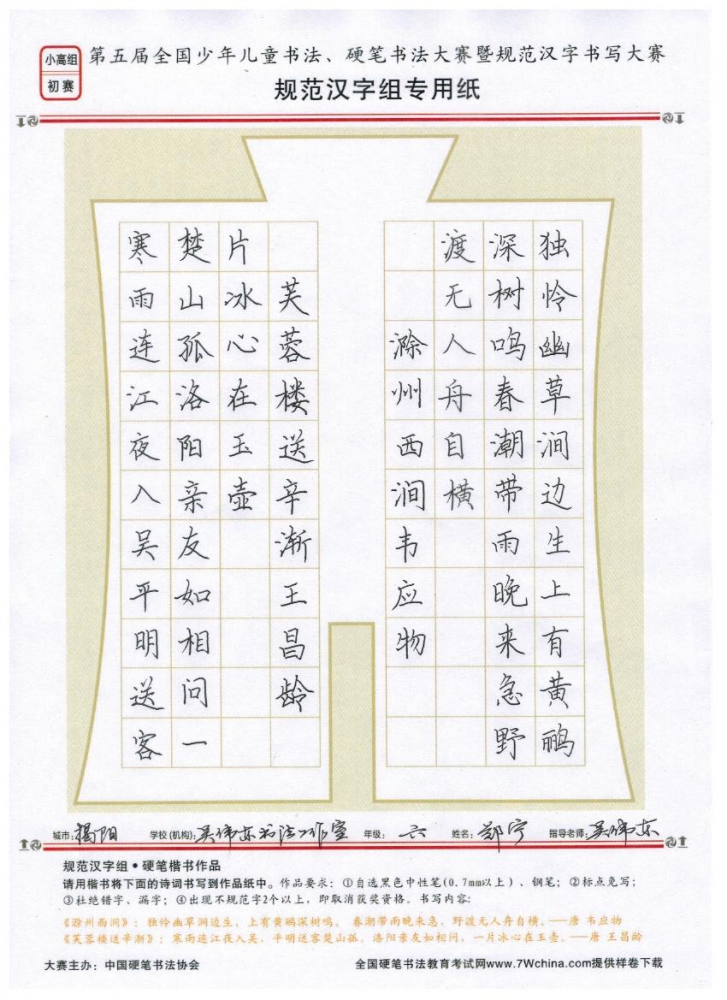 小高组
初赛
第五届全国少年儿童书法、硬笔书法大赛暨规范汉字书写大赛
规范汉字组专用纸
独怜幽草涧边生上有黄鹂
深树鸣春潮带雨晚来急野
渡无人舟自横
滁州西涧韦应物
寒雨连江夜入吴平明送客
楚山孤洛阳亲友如相问一
片冰心在玉壶
芙蓉楼送辛渐王昌龄
城市：揭阳 学校(机构)：吴伟东书法工作室 年级：六 姓名：郑宁 指导老师：吴伟东
规范汉字组•硬笔楷书作品
请用楷书将下面的诗词书写到作品纸中。作品要求：①自选黑色中性笔(0.7mm以上)、钢笔；②标点免写；
③杜绝错字、漏字；④出现不规范字2个以上，即取消获奖资格。书写内容：
《滁州西涧》：独怜幽草涧边生，上有黄鹂深树鸣。春潮带雨晚来急，野渡无人舟自横。——唐 韦应物
《芙蓉楼送辛渐》：寒雨连江夜入吴，平明送客楚山孤。洛阳亲友如相问，一片冰心在玉壶。——唐 王昌龄
大赛主办：中国硬笔书法协会 全国硬笔书法教育考试网www.7Wchina.com提供样卷下载